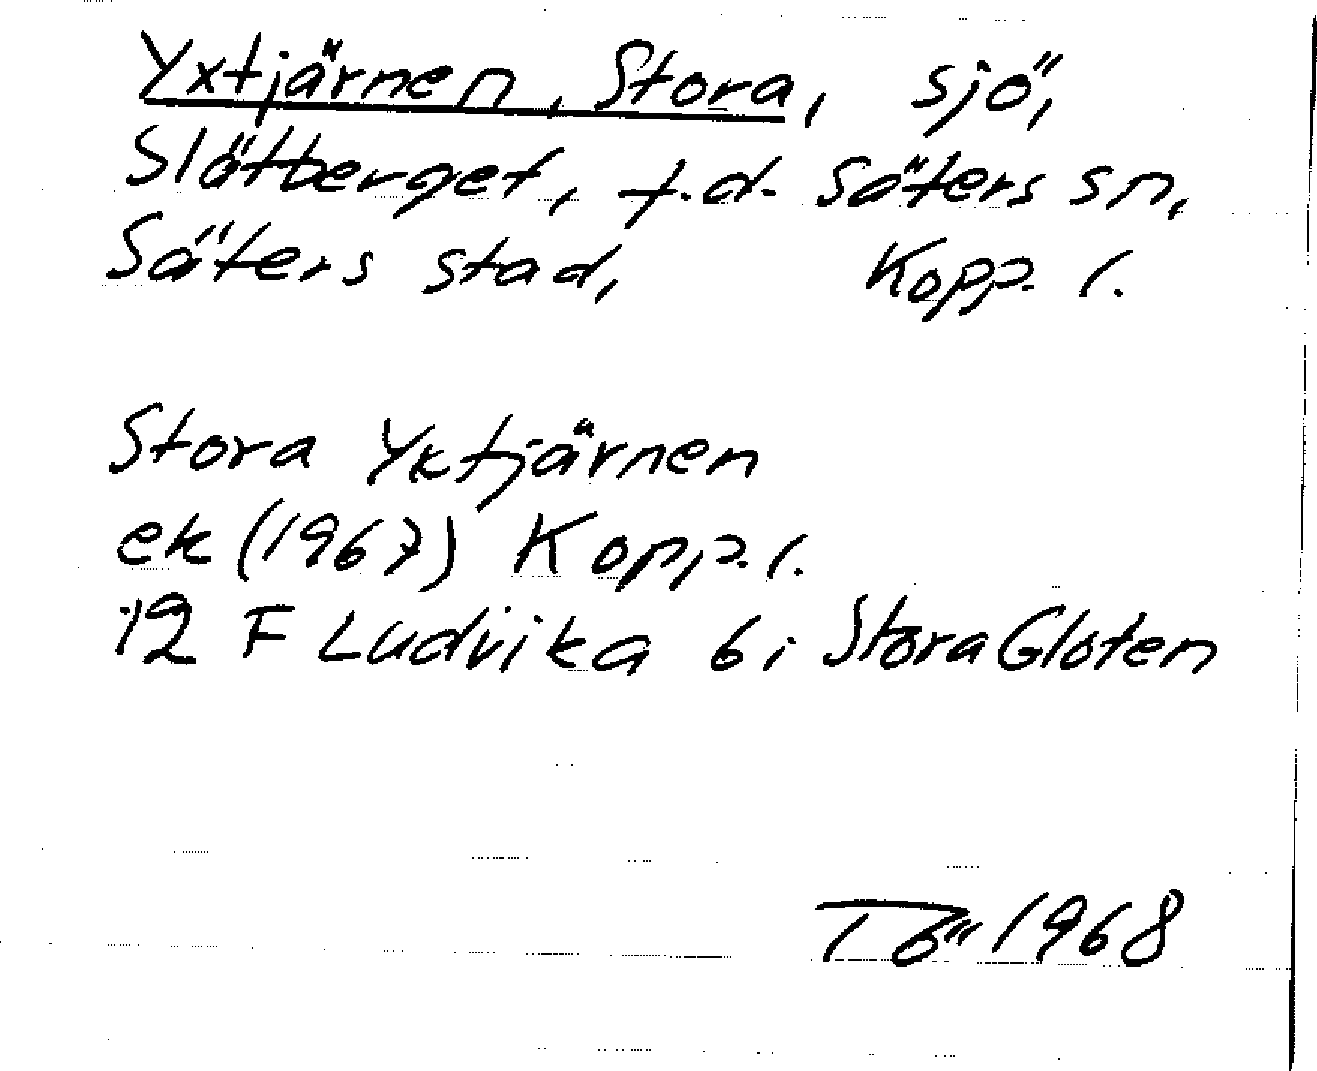 Yxtjärnen, Stora, sjö,
Slätberget, f.d. Säters sn,
Säters stad, Kopp. l.
Stora Yktjärnen
ek (1967) Kopp. l.
12 F Ludvika 6i Stora Gloten
1968